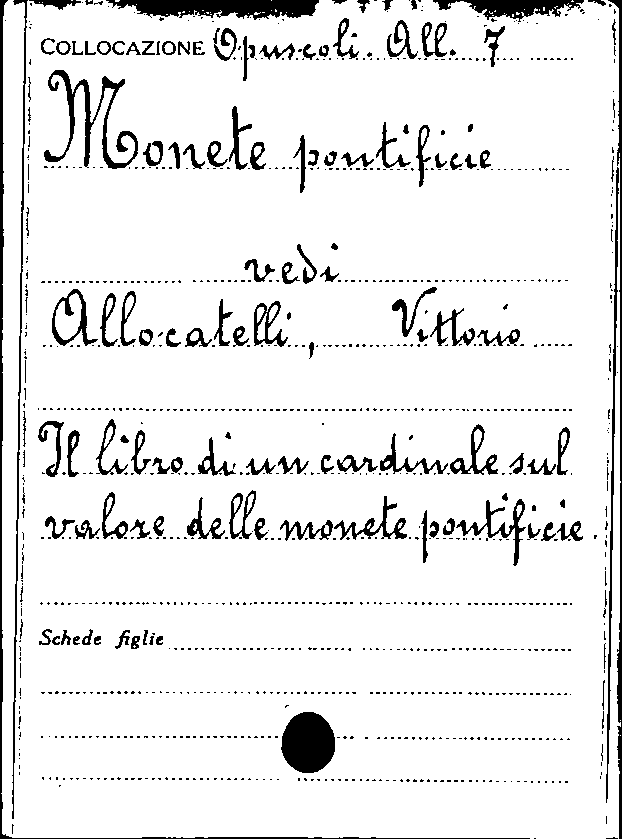 COLLOCAZIONE Opuscoli. All. 7
Monete pontificie
vedi
Allocatelli, Vittorio
Il libro di un cardinale sul
valore delle monete pontificie.
Schede figlie